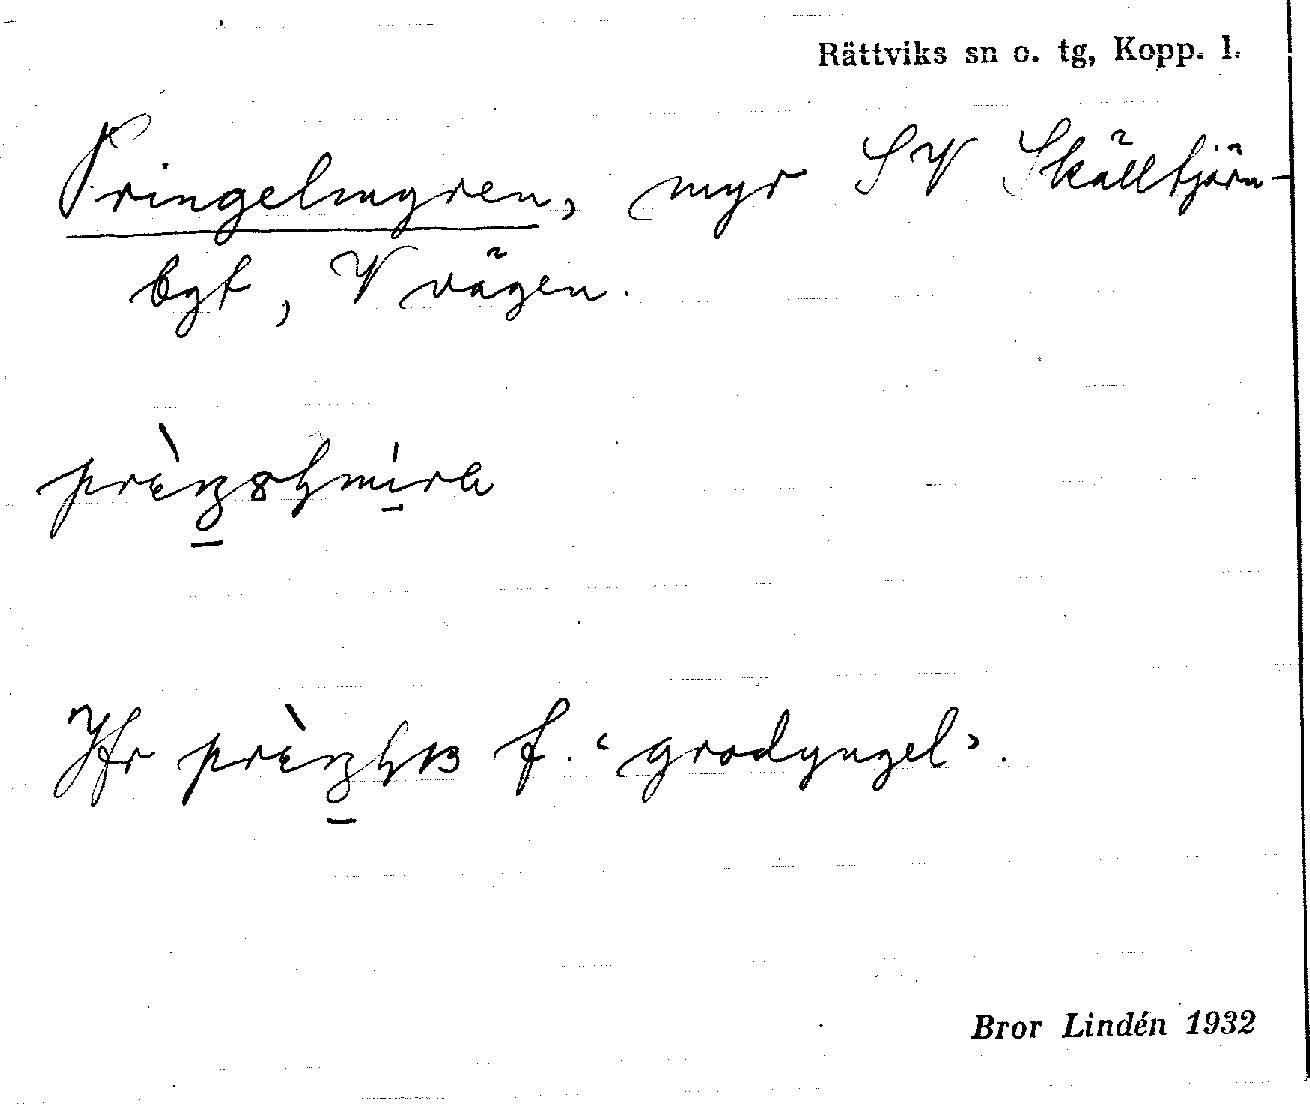 Rättviks sn o. tg, Kopp. l.
Pringelmyren, myr SV Skälltjärn-
bgt, V vägen.
Jfr f. ‘grodyngel’.
Bror Lindén 1932